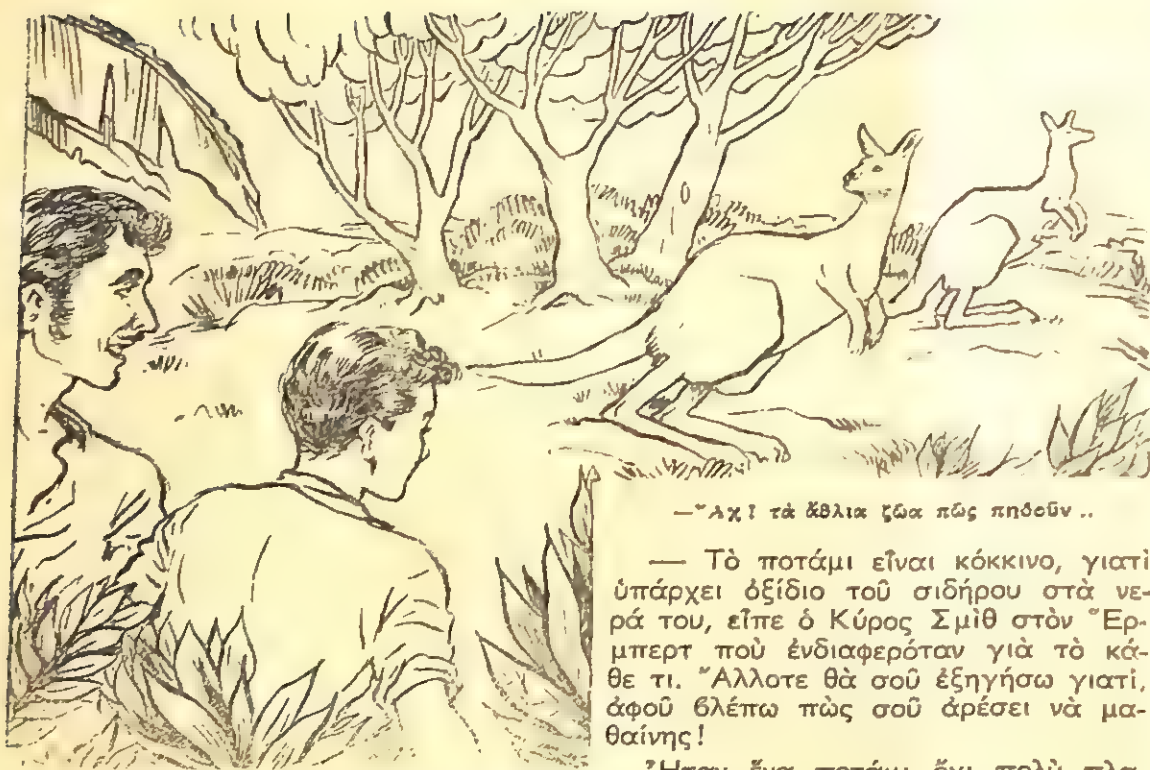 —Ἄχ! τὰ ἄθλια ζῶα πῶς πηδοῦν ..
— Τὸ ποτάμι εἶναι κόκκινο, γιατὶ
ὑπάρχει ὀξίδιο τοῦ σιδήρου στὰ νε-
ρά του, εἶπε ὁ Κύρος Σμὶθ στὸν Ἕρ-
μπερτ ποὺ ἐνδιαφερόταν γιὰ τὸ κά-
θε τι. Ἄλλοτε θὰ σοῦ ἐξηγήσω γιατί,
ἀφοῦ βλέπω πὼς σοῦ ἀρέσει νὰ μα-
θαίνης!
Ἦταν ἕνα ποτάμι ὄχι πολὺ πλα-